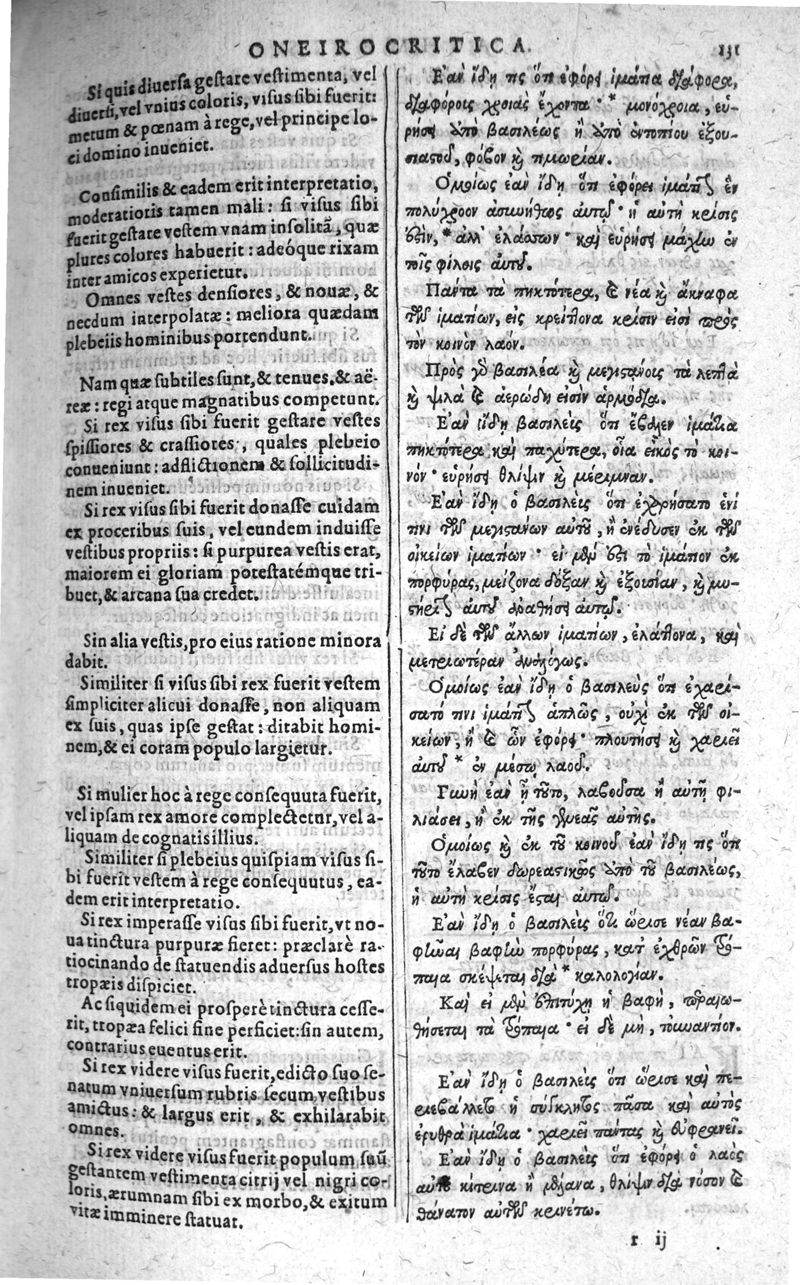 ONEIROCRITICA. 131
Si quis diuersa gestare vestimenta, vel
diuersi, vel vnius coloris, visus sibi fuerit:
metum & pœnam à rege, vel principe lo-
ci domino inueniet.
Consimilis & eadem erit interpretatio,
moderatioris tamen mali: si visus sibi
fuerit gestare vestem vnam insolitã, quæ
plures colores habuerit: adeóque rixam
inter amicos experietur.
Omnes vestes densiores, & nouæ, &
necdum interpolatæ: meliora quædam
plebeiis hominibus portendunt.
Nam quæ subtiles sunt, & tenues, & aë-
reæ: regi atque magnatibus competunt.
Si rex visus sibi fuerit gestare vestes
spissiores & crassiores, quales plebeio
conueniunt: adflictionem & sollicitudi-
nem inueniet.
Si rex visus sibi fuerit donasse cuidam
ex proceribus suis, vel eundem induisse
vestibus propriis: si purpurea vestis erat,
maiorem ei gloriam potestatémque tri-
buet, & arcana sua credet.
Sin alia vestis, pro eius ratione minora
dabit.
Similiter si visus sibi rex fuerit vestem
simpliciter alicui donasse, non aliquam
ex suis, quas ipse gestat: ditabit homi-
nem, & ei coram populo largietur.
Si mulier hoc à rege consequuta fuerit,
vel ipsam rex amore complectetur, vel a-
liquam de cognatis illius.
Similiter si plebeius quispiam visus si-
bi fuerit vestem à rege consequutus, ea-
dem erit interpretatio.
Si rex imperasse visus sibi fuerit, vt no-
ua tinctura purpuræ fieret: præclarè ra-
tiocinando de statuendis aduersus hostes
tropæis dispiciet.
Ac siquidem ei prosperè tinctura cesse-
rit, tropæa felici fine perficiet: sin autem,
contrarius euentus erit.
Si rex videre visus fuerit, edicto suo se-
natum vniuersum rubris secum vestibus
amictus: & largus erit, & exhilarabit
omnes.
Si rex videre visus fuerit populum suũ
gestantem vestimenta citrij vel nigri co-
loris, ærumnam sibi ex morbo, & exitum
vitæ imminere statuat.
Ἐὰν ἴδῃ τις ὅτι ἐφόρει ἱμάτια διάφορα,
διαφόροις χροιάς ἔχοντα· * μονόχροια, εὑ-
ρήσει ὑπὸ βασιλέως ἢ ὑπὸ ἐντοπίου ἐξου-
σιαστοῦ, φόβον καὶ τιμωρίαν.
Ὁμοίως ἐὰν ἴδῃ ὅτι ἐφόρει ἱμάτιον ἓν
πολύχροον ἀσυνήθως αὐτῷ· ἡ αὐτὴ κρίσις
ἐστίν, * ἀλλ' ἐλάσσων· καὶ εὑρήσει μάχην ἐν
τοῖς φίλοις αὐτοῦ.
Πάντα τὰ πηκτότερα, καὶ νέα καὶ ἄκναφα
τῶν ἱματίων, εἰς κρείττονα κρίσιν εἰσὶ πρὸς
τὸν κοινὸν λαόν.
Πρὸς γὸ βασιλέα καὶ μεγιστάνοις τὰ λεπτὰ
καὶ ψιλὰ καὶ ἀερώδη εἰσιν ἁρμόδια.
Ἐὰν ἴδῃ βασιλεὺς ὅτι ἔβαλεν ἱμάτια
πηκτότερα καὶ παχύτερα, οἷα εἰκὸς τὸ κοι-
νόν· εὑρήσει θλίψιν καὶ μέριμναν.
Ἐὰν ἴδῃ ὁ βασιλεὺς ὅτι ἐχρήσατο ἑνί
τινι τῶν μεγιστάνων αὐτοῦ, ἢ ἐνέδυσεν ἐκ τῶν
οἰκείων ἱματίων· εἰ μὲν ἐστι τὸ ἱμάτιον ἐκ
πορφύρας, μείζονα δόξαν καὶ ἐξουσίαν, καὶ μυ-
στήρια αὐτοῦ ἀναθήσει αὐτῷ.
Εἰ δὲ τῶν ἄλλων ἱματίων, ἐλάττονα, καὶ
μετριωτέραν ἀναλόγως.
Ὁμοίως ἐὰν ἴδῃ ὁ βασιλεὺς ὅτι ἐχαρί-
σατό τινι ἱμάτιον ἁπλῶς, οὐχὶ ἐκ τῶν οἰ-
κείων, ἢ ἐξ ὧν ἐφόρει· πλουτήσει καὶ χαριεῖ
αὐτοῦ * ἐν μέσῳ λαοῦ.
Γυνὴ ἐὰν ᾖ τοῦτο, λαβοῦσα ἢ αὐτῇ φι-
λιάσει, ἢ ἐκ τῆς γενεᾶς αὐτῆς.
Ὁμοίως καὶ ἐκ τοῦ κοινοῦ ἐὰν ἴδῃ τις ὅτι
τοῦτο ἔλαβεν δωρεαστικῶς ὑπὸ τοῦ βασιλέως,
ἡ αὐτὴ κρίσις ἔσται αὐτῷ.
Ἐὰν ἴδῃ ὁ βασιλεὺς ὅτι ὥρισε νέαν βα-
φῆναι βαφὴν πορφύρας, κατ' ἐχθρῶν τρό-
παια σκέψεται διὰ * καλολογίαν.
Καὶ εἰ μὲν ἐπιτύχῃ ἡ βαφὴ, ὡραιω-
θήσεται τὰ τρόπαια· εἰ δὲ μὴ, τοὐναντίον.
Ἐὰν ἴδῃ ὁ βασιλεὺς ὅτι ὥρισε καὶ πε-
ριεβάλλετο ἡ σύγκλητος πᾶσα καὶ αὐτὸς
ἐρυθρὰ ἱμάτια· χαριεῖ πάντας καὶ εὐφρανεῖ.
Ἐὰν ἴδῃ ὁ βασιλεὺς ὅτι ἐφόρει ὁ λαὸς
αὐτοῦ κίτρινα ἢ μέλανα, θλίψιν διὰ νόσον καὶ
θάνατον αὐτῶν κρινέτω.
r ij